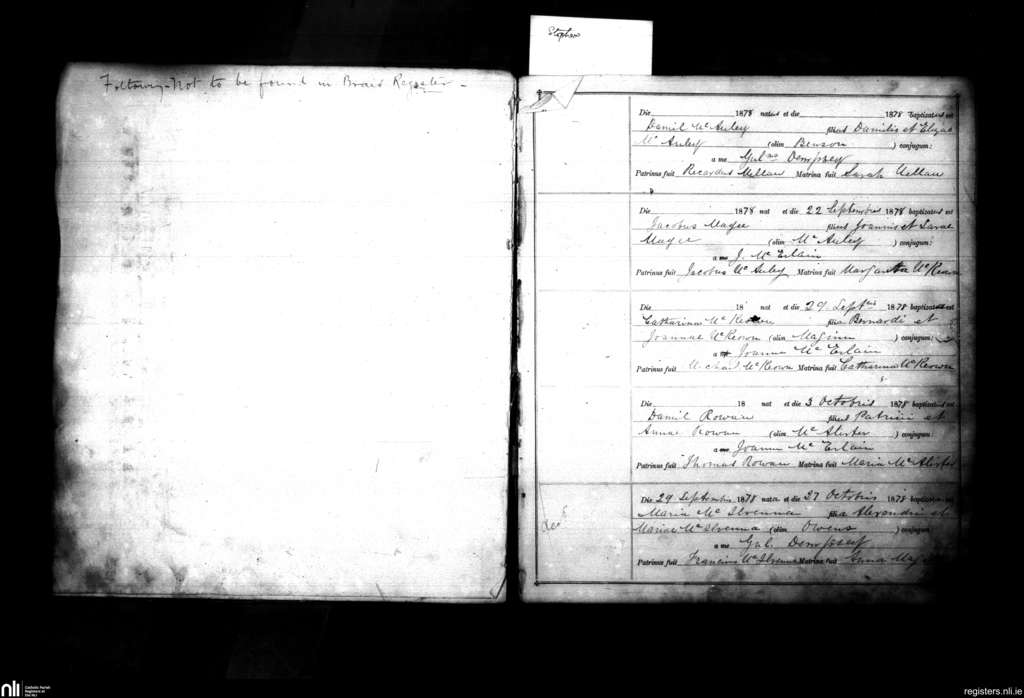 Stephen
Following not to be found in Braid Register -
Die 1878 natus et die 1878 baptizatus est
Daniel McAuley filius Danielis et Elizae
McAuley (olim Benson) conjugum:
a me Gulmo Dempsey
Patrinus fuit Ricardus Mellan Matrina fuit Sarah Mellan
Die 1878 nat et die 22 Septembris 1878 baptizatus est
Jacobus Magee filius Joannis et Sarae
Magee (olim McAuley) conjugum:
a me J. McErlain
Patrinus fuit Jacobus McAuley Matrina fuit Margarita McKeown
Die 18 nat et die 29 Septris 1878 baptizata est
Catharina McKeown filia Bernardi et
Joannae McKeown (olim Maginn) conjugum:
a me Joanne McErlain
Patrinus fuit Michael McKeown Matrina fuit Catharina McKeown
Die 18 nat et die 3 Octobris 1878 baptizatus est
Daniel Rowan filius Patricii et
Annae Rowan (olim McAlister) conjugum:
a me Joanne McErlain
Patrinus fuit Thomas Rowan Matrina fuit Maria McAlister
Die 29 Septembris 1878 nata et die 27 Octobris 1878 baptizata est
Maria McIlvenna filia Alexandri et
Mariae McIlvenna (olim Owens) conjugum
a me Gul. Dempsey
Patrinus fuit Franciscus McIlvenna Matrina fuit Anna
nli Catholic Parish
Registers at
the NLI
registers.nli.ie